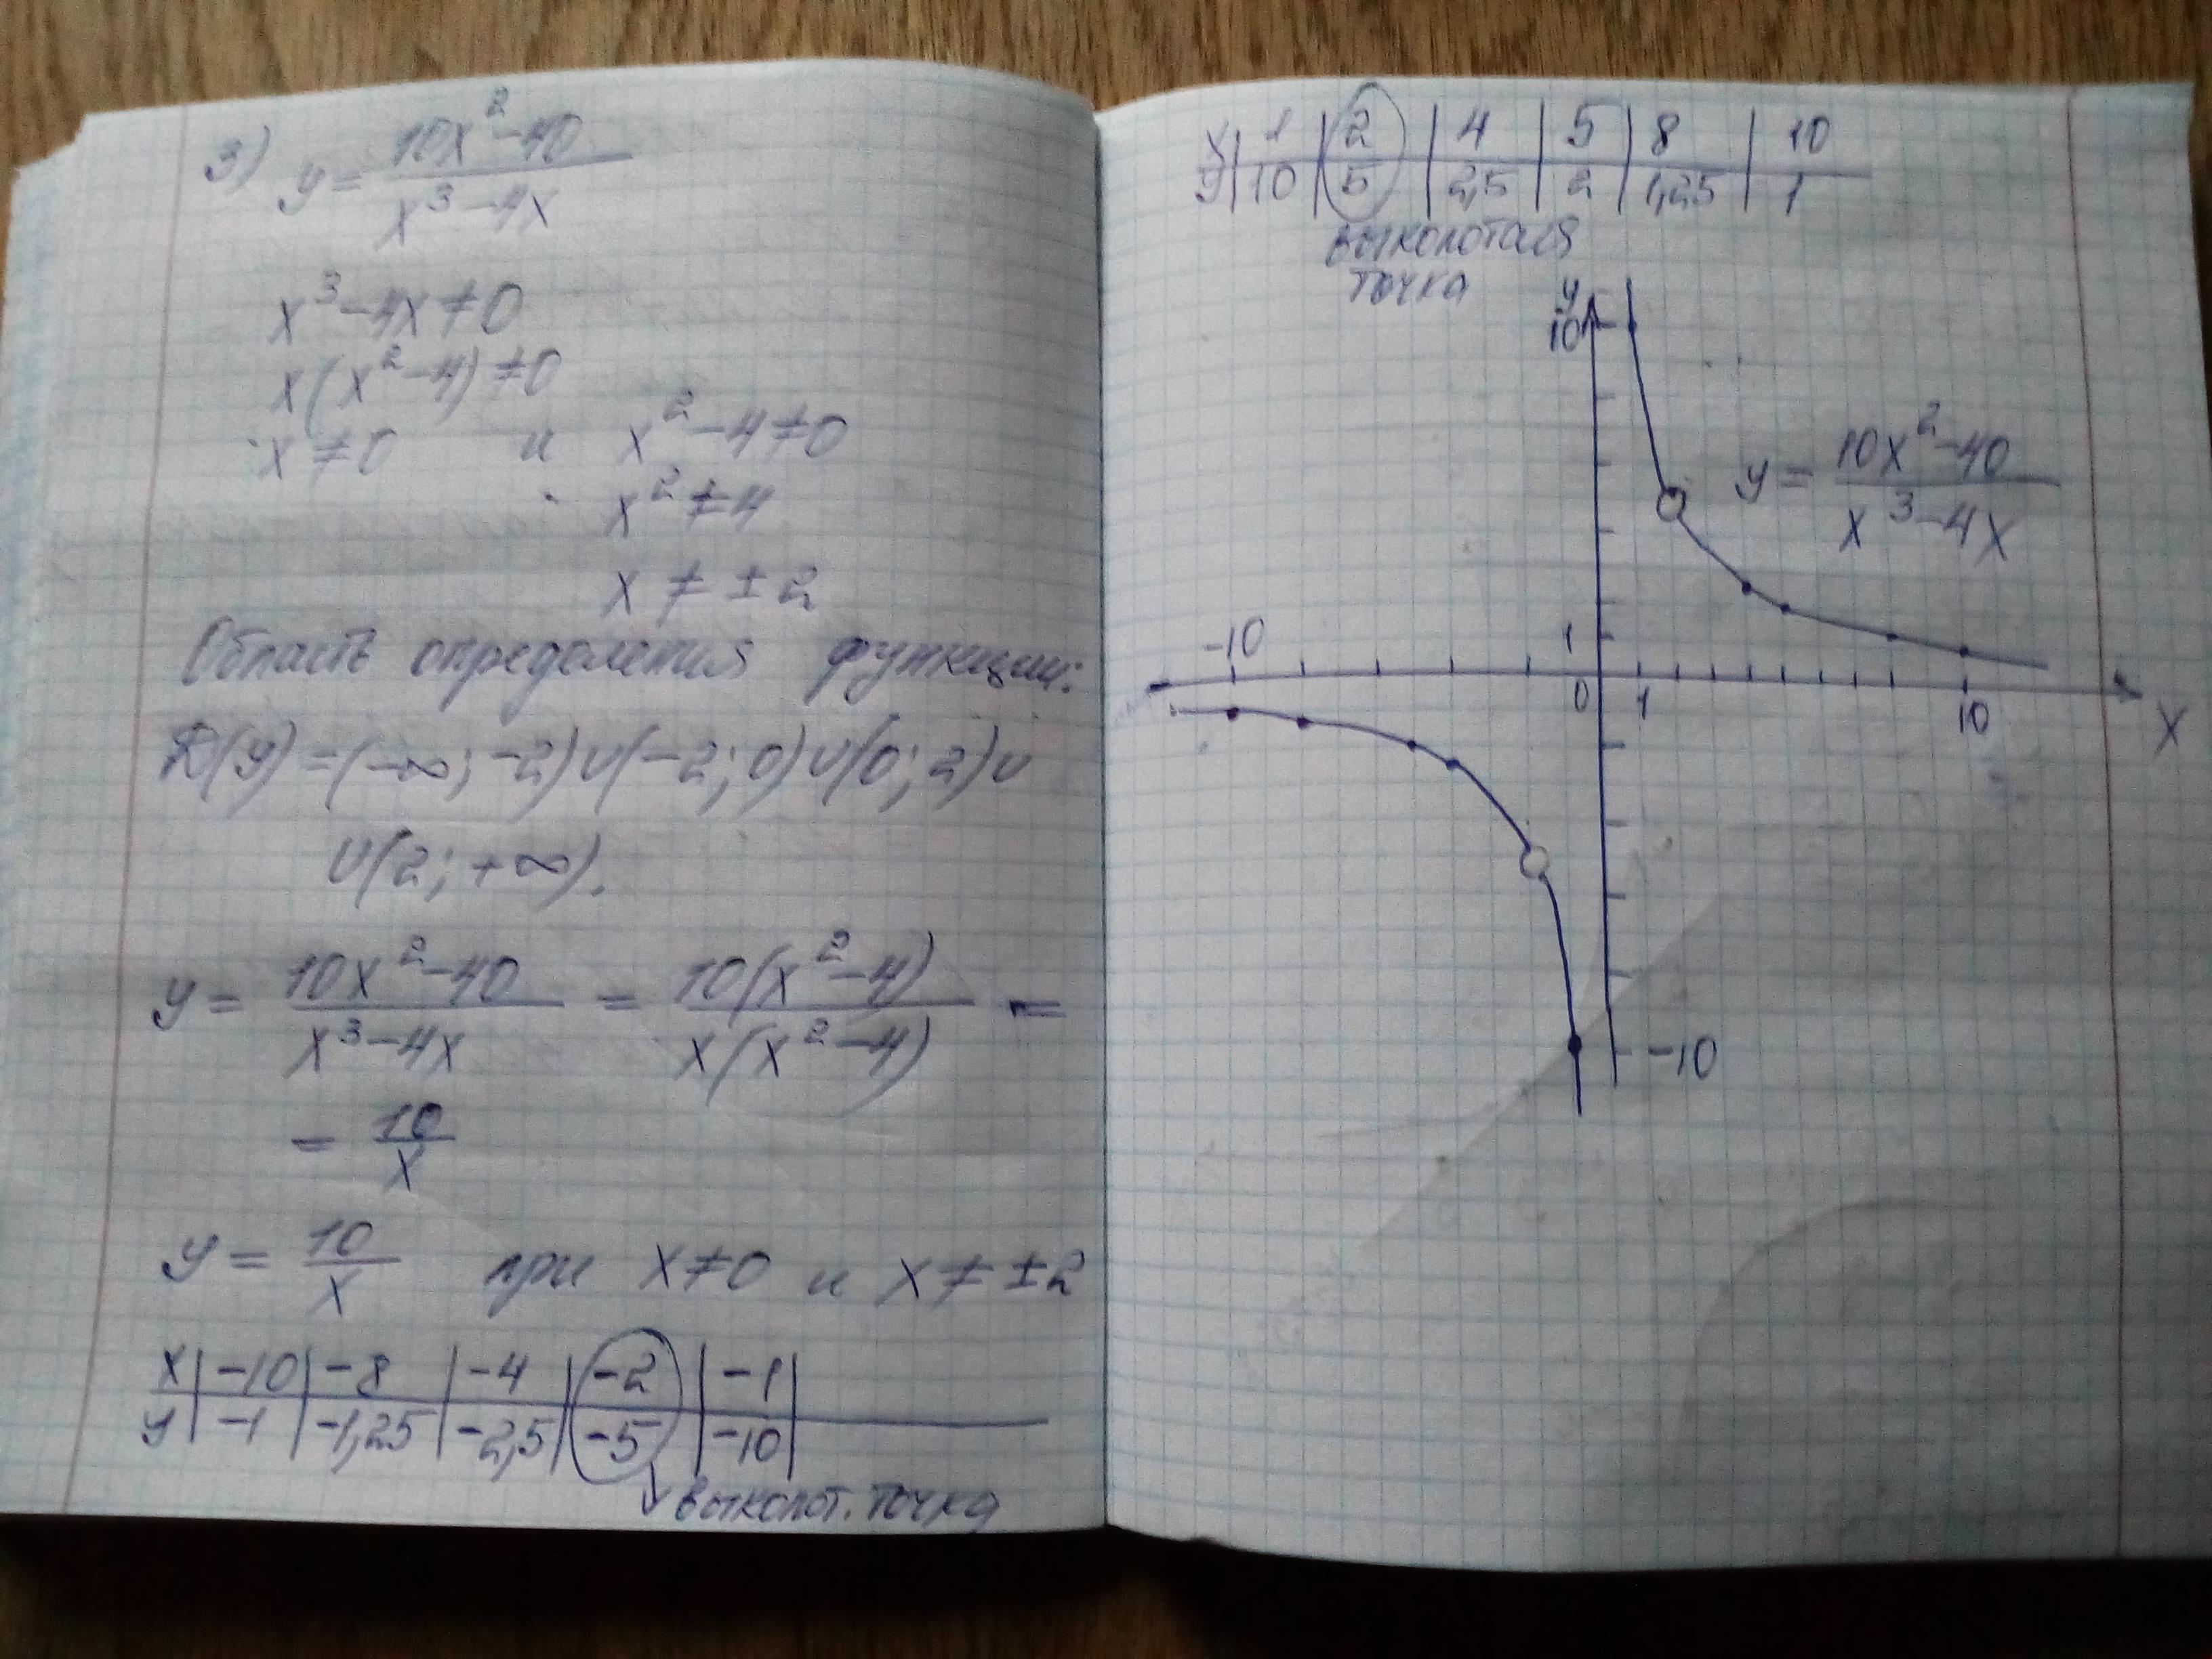 3) y = (10x²-40)/(x³-4x)
x³-4x≠0
x(x²-4)≠0
x≠0 и x²-4≠0
x²≠4
x ≠ ±2
Область определения функции:
D(y)=(-∞; -2)∪(-2; 0)∪(0; 2)∪
∪(2; +∞).
y = (10x²-40)/(x³-4x) = 10(x²-4)/(x(x²-4)) =
= 10/x
y = 10/x при x≠0 и x≠±2
x | -10 | -8 | -4 | -2 | -1 |
y | -1 | -1,25 | -2,5 | -5 | -10 |
выколот. точка
x | 1 | 2 | 4 | 5 | 8 | 10
y | 10 | 5 | 2,5 | 2 | 1,25 | 1
выколотая
точка
y
10
y = (10x²-40)/(x³-4x)
-10 1
0 1 10 x
-10